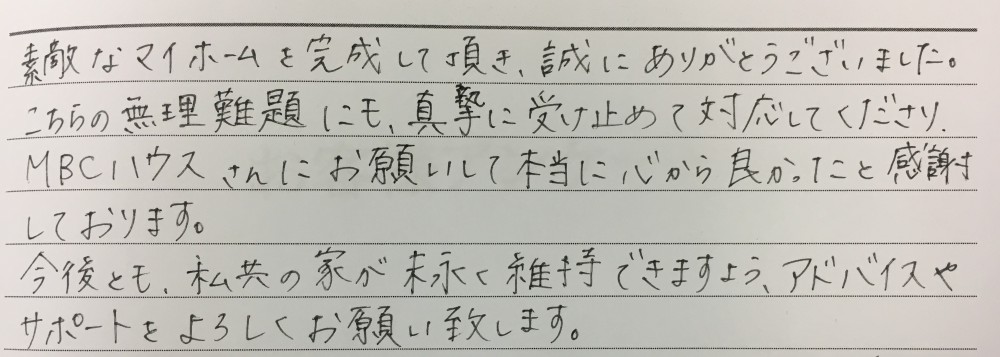 素敵なマイホームを完成して頂き、誠にありがとうございました。
こちらの無理難題にも、真摯に受け止めて対応してくださり、
MBCハウスさんにお願いして本当に心から良かったと感謝
しております。
今後とも、私共の家が末永く維持できますよう、アドバイスや
サポートをよろしくお願い致します。